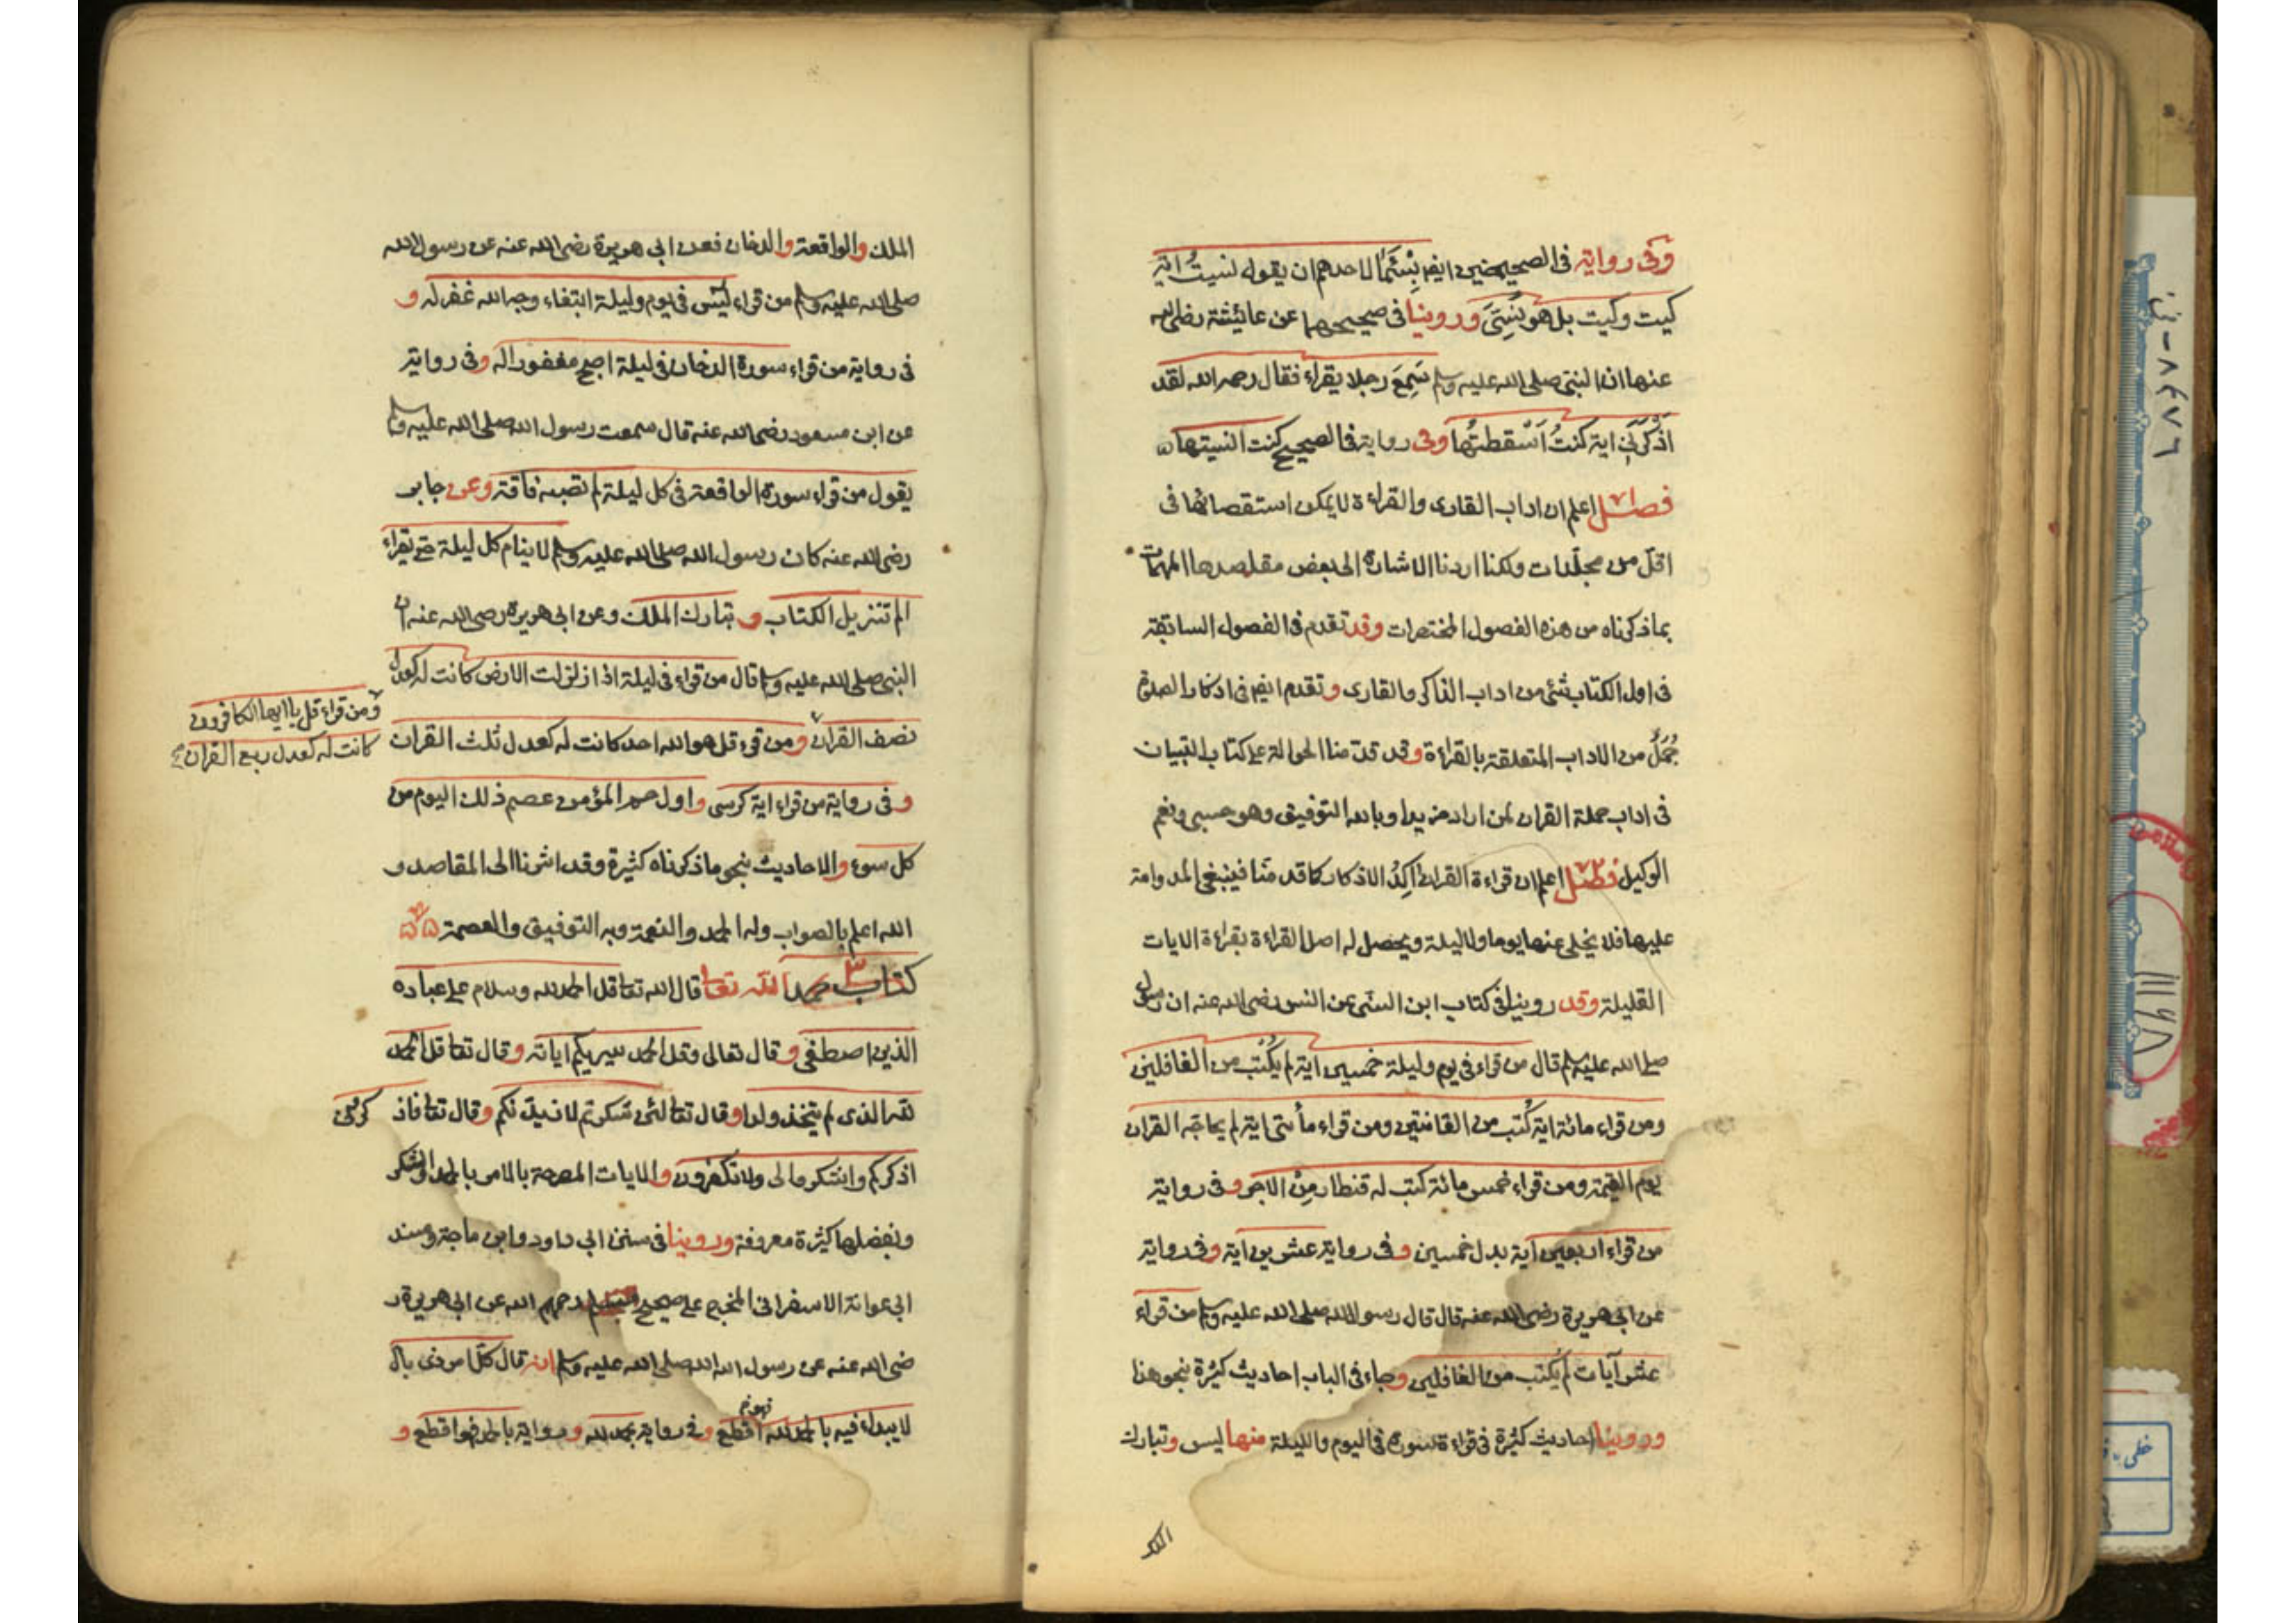 وفى رواية فى الصحيحين ايضا بِئْسَمَا لاحدهم ان يقول نسيتُ اية
كيت وكيت بل هو نُسِّىَ وروينا فى صحيحيهما عن عائيشة رضى الله
عنها ان النبى صلى الله عليه وسلم سَمِعَ رجلا يقراء فقال رحمه الله لقد
اَذْكَرَنِى اية كنتُ اَسْقطتُها وفى رواية فى الصحيح كنت انسيتها
فصل اعلم ان اداب القارى والقراءة لا يمكن استقصائها فى
اقل من مجلّدات ولكنا اردنا الاشارة الى بعض مقاصدها المهمات
بما ذكرناه من هذه الفصول المختصرات وقد تقدم فى الفصول السابقة
فى اول الكتاب شئ من اداب الذاكر والقارى وتقدم ايضا فى اذكار الصلوة
جُمَلٌ من الاداب المتعلقة بالقراءة وقد قدّمنا الحوالة على كتاب التبيان
فى اداب حملة القران لمن اراد مزيدا وبالله التوفيق وهو حسبى ونعم
الوكيل فصل اعلم ان قراءة القران اكِدُ الاذكار كما قدمنا فينبغى المداومة
عليها فلا يخلى عنها يوما ولا ليلة ويحصل له اصل القراءة بقراءة الايات
القليلة وقد روينا فى كتاب ابن السنى عن انس رضى الله عنه ان رسول
صلى الله عليه وسلم قال من قراء فى يوم وليلة خمسين اية لم يُكْتب من الغافلين
ومن قراء مائة اية كُتب من القانتين ومن قراء مأتى اية لم يحاجّه القران
يوم القيمة ومن قراء خمس مائة كتب له قنطار مِنَ الاجر وفى رواية
من قراء اربعين آية بدل خمسين وفى رواية عشرين آية وفى رواية
عن ابى هريرة رضى الله عنه قال قال رسول الله صلى الله عليه وسلم من قراء
عشر آيات لم يُكتب من الغافلين وجاء فى الباب احاديث كثيرة بنحو هذا
وروينا احاديث كثيرة فى قراءة سورة فى اليوم والليلة منها يس وتبارك
الملك
الملك والواقعة والدخان فعن ابى هريرة رضى الله عنه عن رسول الله
صلى الله عليه وسلم من قراء يس فى يوم وليلة ابتغاء وجه الله غفر له و
فى رواية من قراء سورة الدخان فى ليلة اصبح مغفورا له وفى رواية
عن ابن مسعود رضى الله عنه قال سمعت رسول الله صلى الله عليه وسلم
يقول من قراء سورة الواقعة فى كل ليلة لم تصبه فاقة وعن جابر
رضى الله عنه كان رسول الله صلى الله عليه وسلم لا ينام كل ليلة حتى يقراء
الم تنزيل الكتاب و تبارك الملك وعن ابى هريرة رضى الله عنه ان
النبى صلى الله عليه وسلم قال من قراء فى ليلة اذا زلزلت الارض كانت له كعدل
نصف القران ومن قرء قل هو الله احد كانت له كعدل ثلث القران
ومن قراء قل يا ايها الكافرون
كانت له كعدل ربع القران
وفى رواية من قراء اية كرسى واول حم المؤمن عصم ذلك اليوم من
كل سوء والاحاديث بنحو ما ذكرناه كثيرة وقد اشرنا الى المقاصد و
الله اعلم بالصواب وله الحمد والنعمة وبه التوفيق والعصمة
كتاب حمد الله تعا قال الله تعا قل الحمد لله وسلام على عباده
الذين اصطفى وقال تعالى وقل الحمد سيريكم اياته وقال تعا قل الحمد
لله الذى لم يتخذ ولدا وقال تعا لئن شكرتم لازيدنكم وقال تعا فاذ كرونى
اذكركم واشكروا لى ولا تكفرون والايات المصرحة بالامر بالحمد والشكر
وبفضلها كثيرة معروفة وروينا فى سنن ابى داود وابن ماجة ومسند
ابى عوانة الاسفرانى المخرج على صحيح مسلم رحمهم الله عن ابى هريرة ر
ضى الله عنه عن رسول الله صلى الله عليه وسلم انه قال كل امر ذى بال
لا يبداء فيه بالحمد لله اقطع وفى رواية بحمد لله وبرواية بالحمد فهو اقطع و
فهو